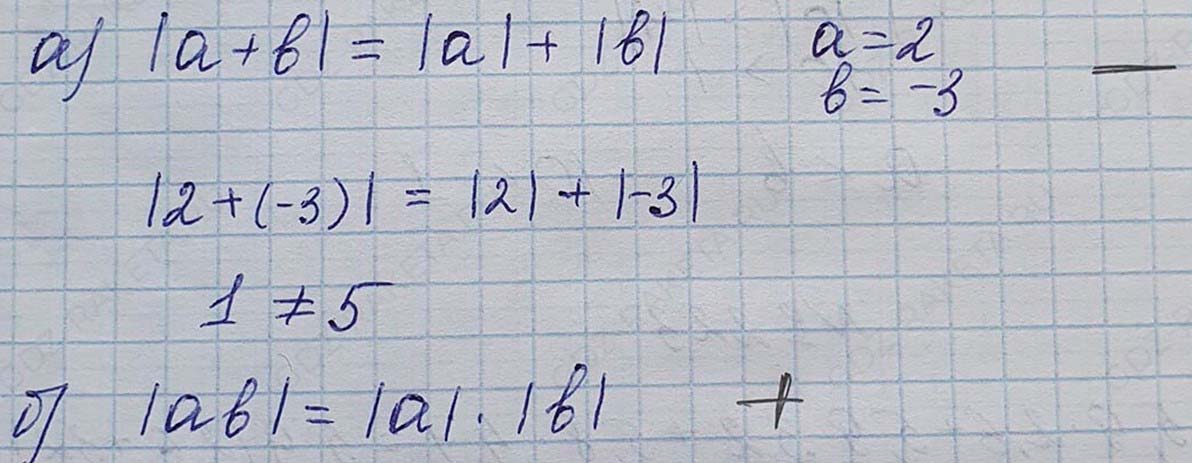 а) |a + b| = |a| + |b| a = 2 —
b = -3
|2 + (-3)| = |2| + |-3|
1 ≠ 5
б) |ab| = |a| · |b| +